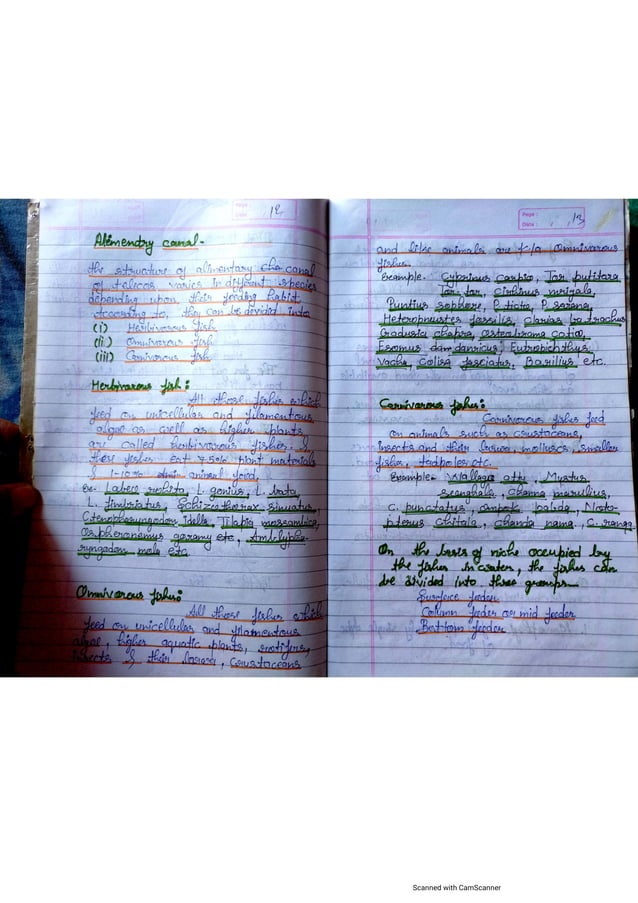 Page :
Date :
12,
Alimendry canal-
the structure of alimentary cha canal
of teleosts varies in different species
depending upon their feeding habit
According to, they can be devided into
(i) Herbivarous fish
(ii) Omnivarous fish
(iii) Carnivarous fish
Herbivarous fish:
All those fishes which
feed on unicellulas and filamentous
algae as well as higher plants
are called herbivarous fishes. &
these fishes eat 75% plant materials
& 1-10% animal feed.
Ex- Labeo rohita, L. gonius, L. bata,
L. fimbriatus, Schizothorax sinuatus,
Ctenopharyngodon idella, Tilapia mossambica,
Ospheronemus goramy etc, Amblypha-
ryngodon mola etc
Omnivarous fishes:
All those fishes which
feed on unicellulas and filamentous
algae, higher aquatic plants, rotifers,
insects & their larvae, crustaceans
Page :
Date :
13
and like animals are k/a Omnivarous
fishes.
Example- Cyprinus carpio, Tor putitora
Tor tor, Cirhinus mrigala,
Puntius sophore, P. ticto, P. sarana,
Heteropneustes fossilis, clarias batrachus
Gadusia chapra, osteobrama cotio,
Esomus danricus, Eutropichthys,
Vacha, Colisa fasciatus, Barilius etc.
Carnivarous fishes:
Carnivarous fishes feed
on animals such as crustaceans,
insects and their larvae, molluscs, smaller
fishes, tadpoles etc.
Example- Wallago attu, Mystus
seenghala, channa marulius,
C. punctatus, ompok pabda, Noto-
pterus chitala, chanda nama, C. ranga
On the basis of niche occupied by
the fishes in water, the fishes can
be divided into three groups-
Surface feeder
Column feeder or mid feeder
Bottom feeder
Scanned with CamScanner